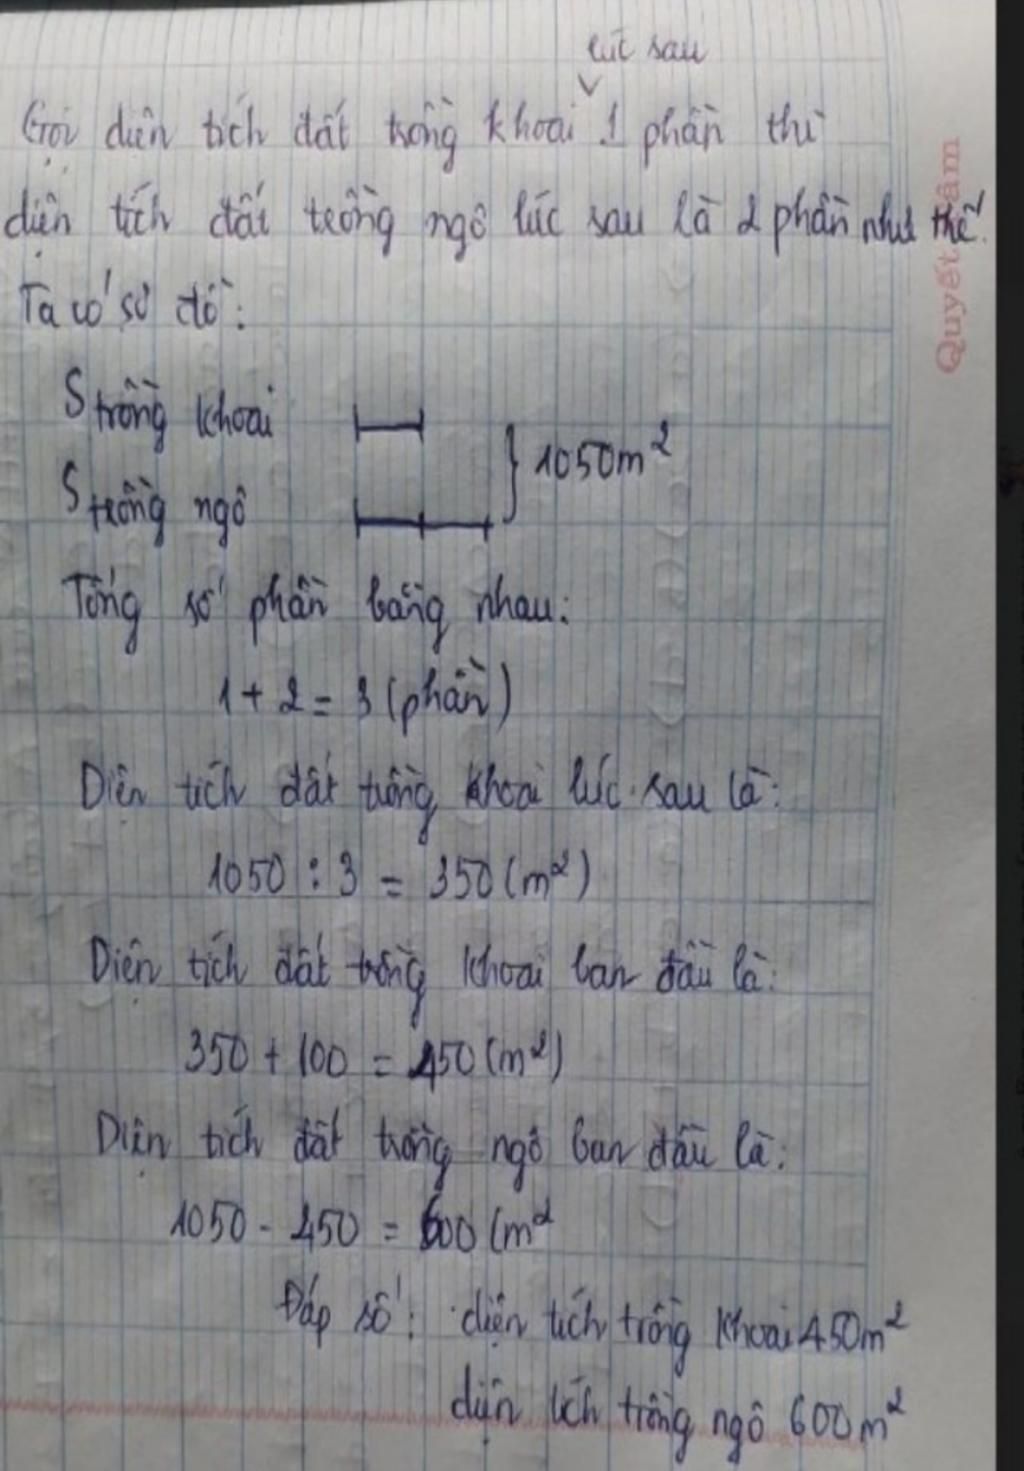 lúc sau
Gọi diện tích đất trồng khoai 1 phần thì
diện tích đất trồng ngô lúc sau là 2 phần như thế.
Ta có sơ đồ:
S trồng khoai
1050m²
S trồng ngô
Tổng số phần bằng nhau:
1 + 2 = 3 (phần)
Diện tích đất trồng khoai lúc sau là:
1050 : 3 = 350 (m²)
Diện tích đất trồng khoai ban đầu là:
350 + 100 = 450 (m²)
Diện tích đất trồng ngô ban đầu là:
1050 - 450 = 600 (m²
Đáp số: diện tích trồng khoai 450m²
diện tích trồng ngô 600m²
Quyết tâm